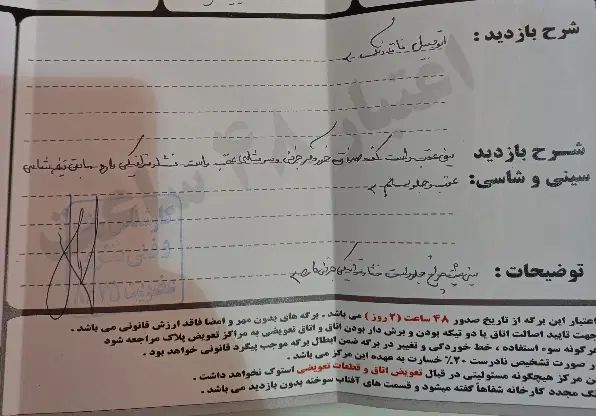 شرح بازدید :
اتومبیل فاقد رنگ
اعتبار ۴۸ ساعت
شرح بازدید
سینی و شاسی:
سینی عقب راست کف صندوق خوردگی جزئی و سر شاسی عقب راست
عقب و جلو سالم
توضیحات :
سینی جلو راست جزئی دارد
کارشناس
و فنی
عضویت
اعتبار این برگه از تاریخ صدور ۴۸ ساعت (۲ روز) می باشد . برگه های بدون مهر و امضا فاقد ارزش قانونی می باشد .
جهت تایید اصالت اتاق یا دو تیکه بودن و برش دار بودن اتاق و اتاق تعویضی به مراکز تعویض پلاک مراجعه شود
هر گونه سوء استفاده ، خط خوردگی و تغییر در برگه ضمن ابطال برگه موجب پیگرد قانونی خواهد بود .
در صورت تشخیص نادرست ۲۰٪ خسارت به عهده این مرکز می باشد .
این مرکز هیچگونه مسئولیتی در قبال تعویض اتاق و قطعات تعویضی استوک نخواهد داشت .
رنگ مجدد کارخانه شفاها گفته میشود و قسمت های آفتاب سوخته بدون بازدید می باشد .